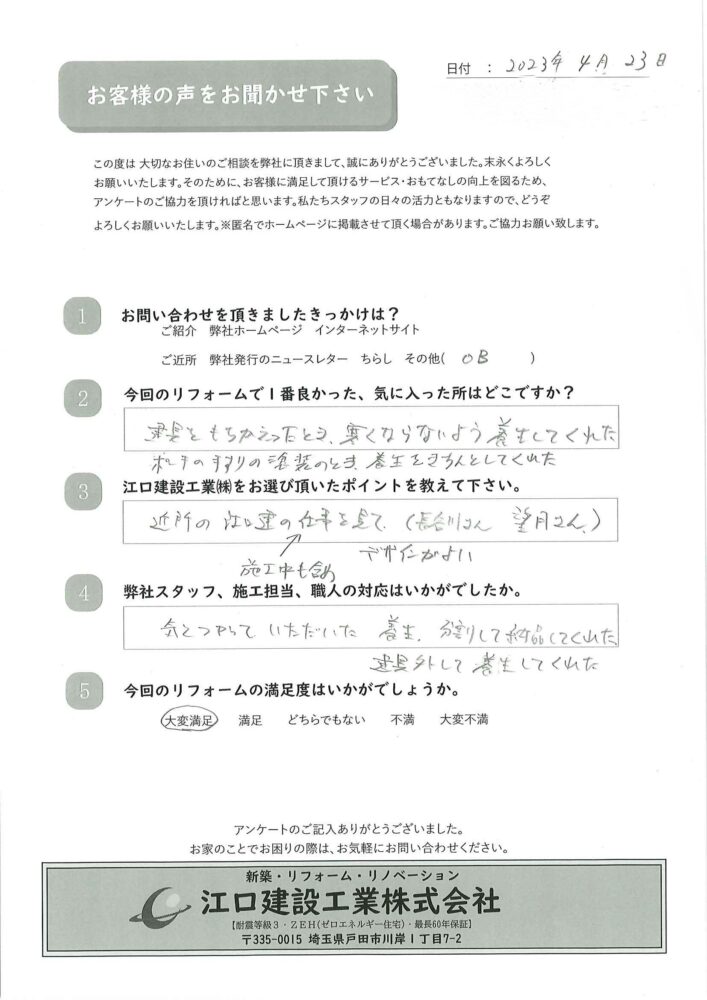 日付 : 2023年 4月 23日
お客様の声をお聞かせ下さい
この度は 大切なお住いのご相談を弊社に頂きまして、誠にありがとうございました。末永くよろしく
お願いいたします。そのために、お客様に満足して頂けるサービス・おもてなしの向上を図るため、
アンケートのご協力を頂ければと思います。私たちスタッフの日々の活力ともなりますので、どうぞ
よろしくお願いいたします。※匿名でホームページに掲載させて頂く場合があります。ご協力お願い致します。
1 お問い合わせを頂きましたきっかけは?
ご紹介 弊社ホームページ インターネットサイト
ご近所 弊社発行のニュースレター ちらし その他( OB )
2 今回のリフォームで1番良かった、気に入った所はどこですか?
建具をもちかえったとき、寒くならないよう養生してくれた
ポーチの手すりの塗装のとき、養生をきちんとしてくれた
3 江口建設工業㈱をお選び頂いたポイントを教えて下さい。
近所の江口建の仕事を見て、(長谷川さん 望月さん)
施工中も含め
デザインがよい
4 弊社スタッフ、施工担当、職人の対応はいかがでしたか。
気をつかって いただいた 養生、分割して納品してくれた
建具外して養生してくれた
5 今回のリフォームの満足度はいかがでしょうか。
大変満足 満足 どちらでもない 不満 大変不満
アンケートのご記入ありがとうございました。
お家のことでお困りの際は、お気軽にお問い合わせください。
新築・リフォーム・リノベーション
江口建設工業株式会社
【耐震等級3・ZEH(ゼロエネルギー住宅)・最長60年保証】
〒335-0015 埼玉県戸田市川岸1丁目7-2